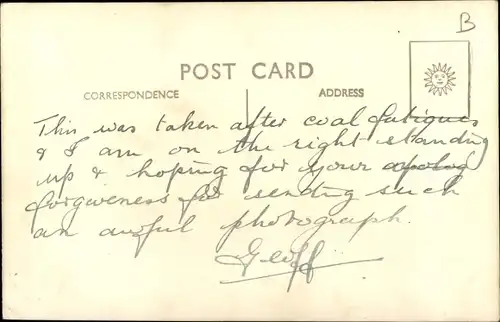 B
POST CARD
CORRESPONDENCE ADDRESS
This was taken after coal fatigues
& I am on the right standing
up & hoping for your apolog
forgiveness for sending such
an awful photograph.
Geoff